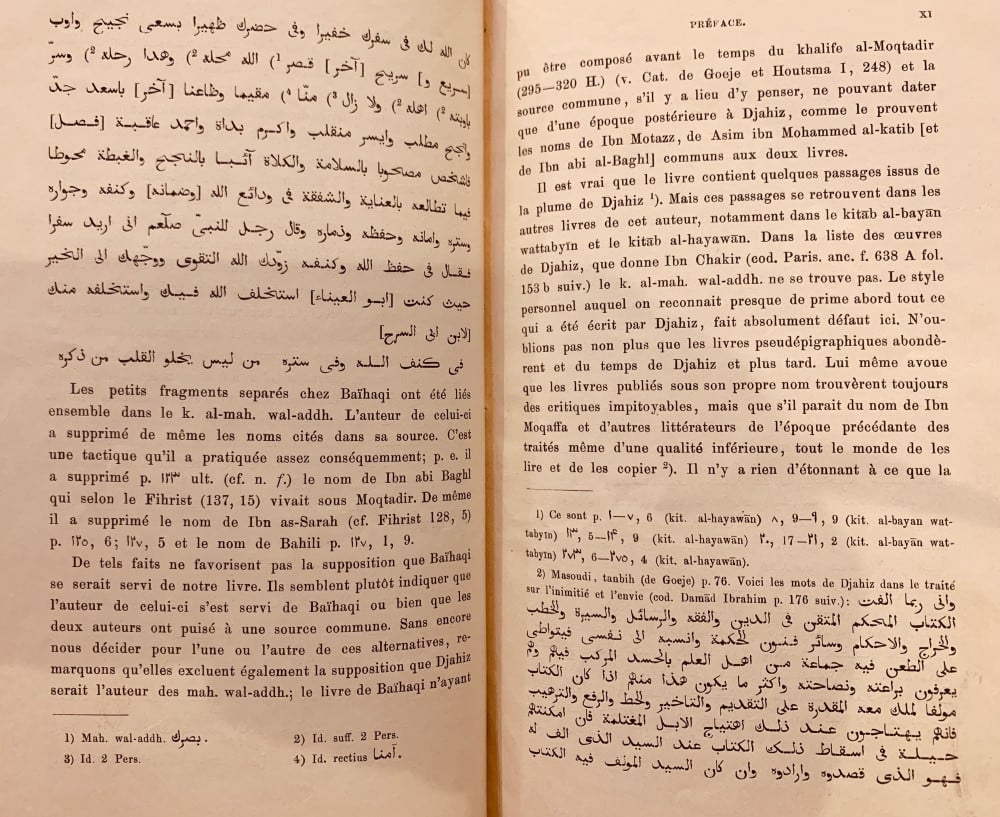 كان الله لك فى سفرك خفيرا وفى حضرك ظهيرا بسعى نجيح واوب
[سريع و] سريح [آخر] قصر ¹) الله محله ²) وهدا رحله ²) وسرّ
باوبته ²) اهله ²) ولا زال ³) منّا ⁴) مقيما وظاعنا [آخر] باسعد جدّ
وانجح مطلب وايسر منقلب واكرم بداة واحمد عاقبة [فصل]
فاشخص مصحوبا بالسلامة والكلاة آئبا بالنجح والغبطة محوطا
فيما تطالعه بالعناية والشفقة فى ودائع الله [وضمانه] وكنفه وجواره
وستره وامانه وحفظه وذماره وقال رجل للنبىّ صلّعم انى اريد سفرا
فقال فى حفظ الله وكنفه زودك الله التقوى ووجّهك الى الخير
حيث كنت [ابو العيناء] استخلف الله فيك واستخلفه منك
[لابن ابى السرح]
فى كنف الله وفى ستره من ليس يخلو القلب من ذكره
Les petits fragments separés chez Baïhaqi ont été liés
ensemble dans le k. al-mah. wal-addh. L'auteur de celui-ci
a supprimé de même les noms cités dans sa source. C'est
une tactique qu'il a pratiquée assez conséquement; p. e. il
a supprimé p. ١٢٣ ult. (cf. n. f.) le nom de Ibn abi Baghl
qui selon le Fihrist (137, 15) vivait sous Moqtadir. De même
il a supprimé le nom de Ibn as-Sarah (cf. Fihrist 128, 5)
p. ١٢٥, 6; ١٢٧, 5 et le nom de Bahili p. ١٢٧, 1, 9.
De tels faits ne favorisent pas la supposition que Baïhaqi
se serait servi de notre livre. Ils semblent plutôt indiquer que
l'auteur de celui-ci s'est servi de Baïhaqi ou bien que les
deux auteurs ont puisé à une source commune. Sans encore
nous décider pour l'une ou l'autre de ces alternatives, re-
marquons qu'elles excluent également la supposition que Djahiz
serait l'auteur des mah. wal-addh.; le livre de Baïhaqi n'ayant
1) Mah. wal-addh. بصرك.
2) Id. suff. 2 Pers.
3) Id. 2 Pers.
4) Id. rectius آمنا.
PRÉFACE.
XI
pu être composé avant le temps du khalife al-Moqtadir
(295—320 H.) (v. Cat. de Goeje et Houtsma I, 248) et la
source commune, s'il y a lieu d'y penser, ne pouvant dater
que d'une époque postérieure à Djahiz, comme le prouvent
les noms de Ibn Motazz, de Asim ibn Mohammed al-katib [et
de Ibn abi al-Baghl] communs aux deux livres.
Il est vrai que le livre contient quelques passages issus de
la plume de Djahiz ¹). Mais ces passages se retrouvent dans les
autres livres de cet auteur, notamment dans le kitāb al-bayān
wattabyīn et le kitāb al-hayawān. Dans la liste des œuvres
de Djahiz, que donne Ibn Chakir (cod. Paris. anc. f. 638 A fol.
153 b suiv.) le k. al-mah. wal-addh. ne se trouve pas. Le style
personnel auquel on reconnait presque de prime abord tout ce
qui a été écrit par Djahiz, fait absolument défaut ici. N'ou-
blions pas non plus que les livres pseudépigraphiques abondè-
rent et du temps de Djahiz et plus tard. Lui même avoue
que les livres publiés sous son propre nom trouvèrent toujours
des critiques impitoyables, mais que s'il parait du nom de Ibn
Moqaffa et d'autres littérateurs de l'époque précédante des
traités même d'une qualité inférieure, tout le monde de les
lire et de les copier ²). Il n'y a rien d'étonnant à ce que la
1) Ce sont p. ١—٧, 6 (kit. al-hayawān) ٨, 9—٩, 9 (kit. al-bayan wat-
tabyīn) ١٣, 5—١٤, 9 (kit. al-hayawān) ٢٠, 17—٢١, 2 (kit. al-bayān wat-
tabyīn) ٢٧٣, 6—٢٧٥, 4 (kit. al-hayawān).
2) Masoudi, tanbih (de Goeje) p. 76. Voici les mots de Djahiz dans le traité
sur l'inimitié et l'envie (cod. Damād Ibrahim p. 176 suiv.): وانى ربما الفت
الكتاب المحكم المتقن فى الدين والفقه والرسائل والسيرة والخطب
والخراج والاحكام وسائر فنون الحكمة وانسبه الى نفسى فيتواطى
على الطعن فيه جماعة من اهل العلم بالحسد المركب فيهم وهم
يعرفون براعته ونصاحته واكثر ما يكون هذا منهم اذا كان الكتاب
مولفا لملك معه المقدرة على التقديم والتاخير والحط والرفع والترهيب
فانهم يهتاجون عند ذلك اهتياج الابل المغتلمة فان امكنتهم
حيلة فى اسقاط ذلك الكتاب عند السيد الذى الف له
فهو الذى قصدوه وارادوه وان كان السيد المولف فيه الكتاب